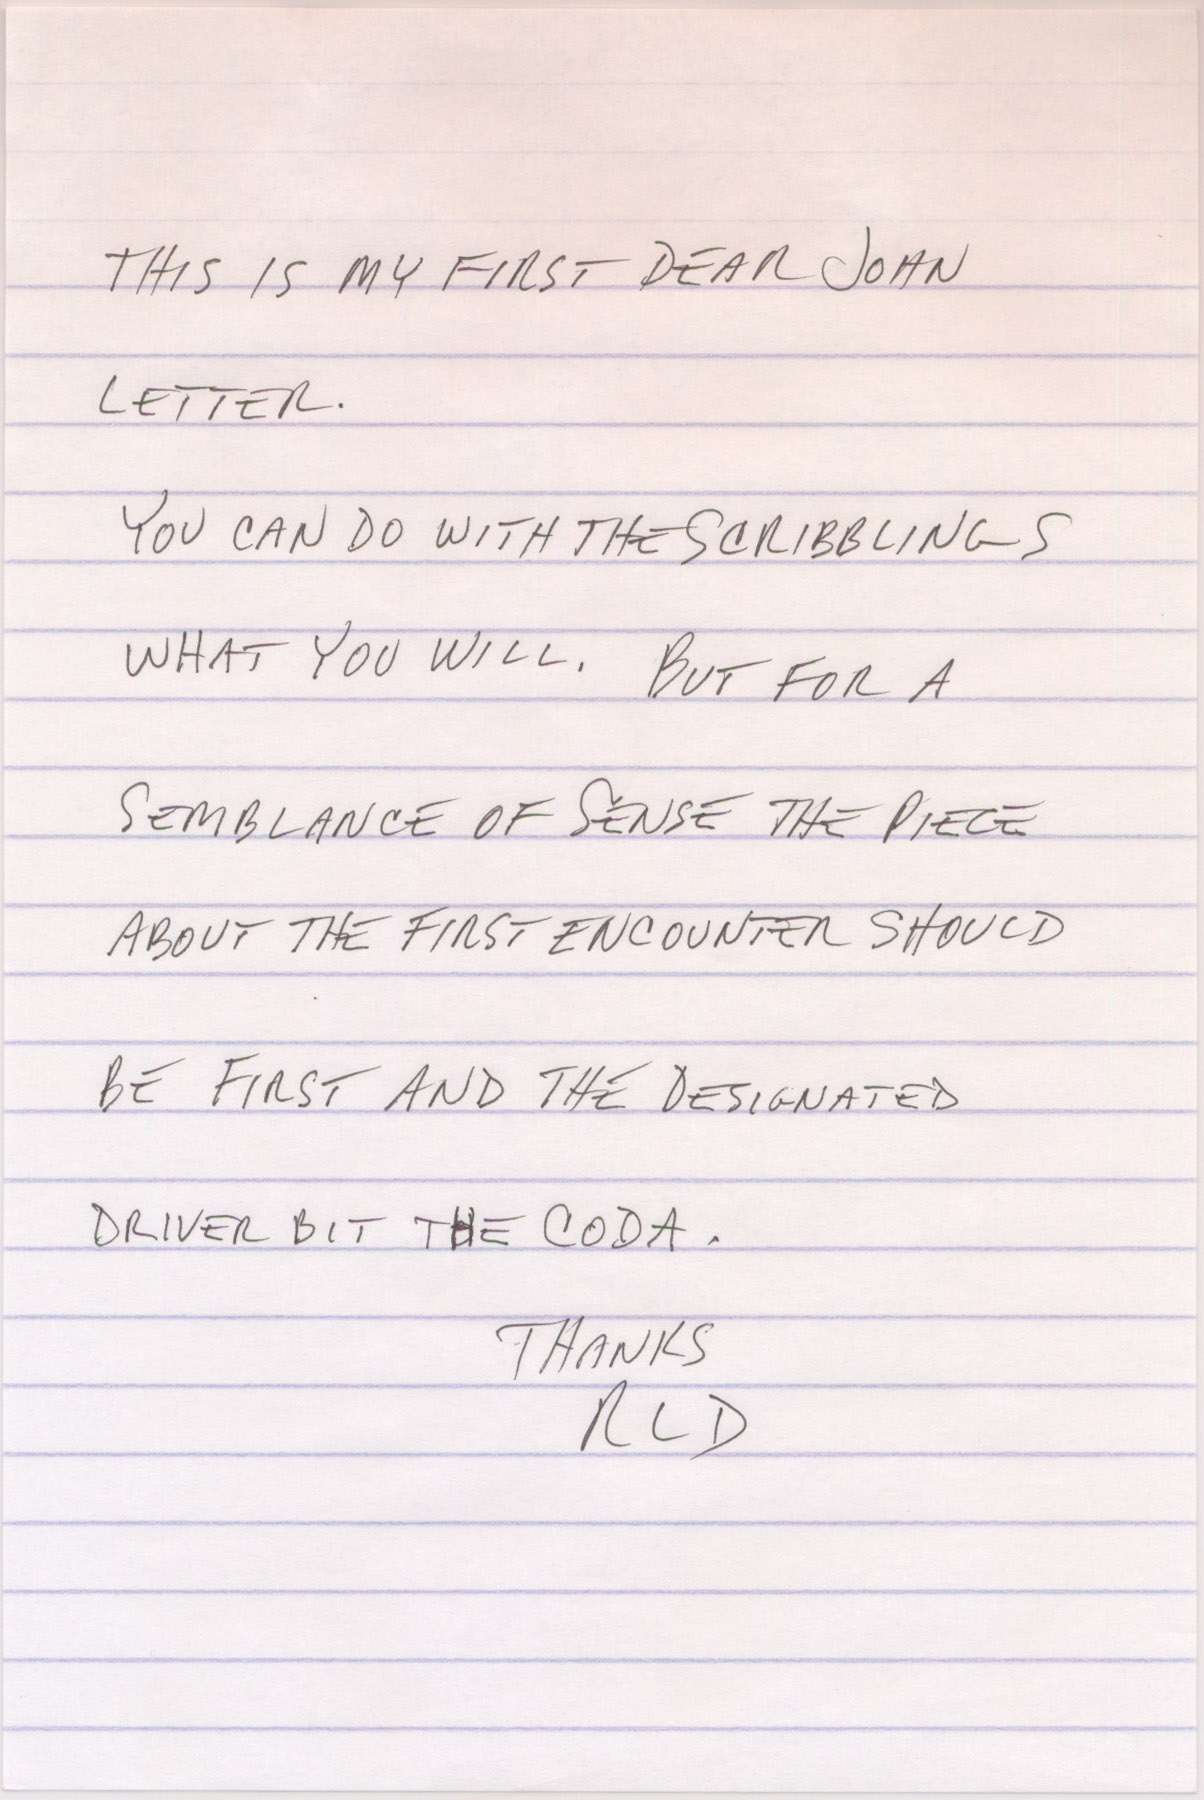 THIS IS MY FIRST DEAR JOHN
LETTER.
YOU CAN DO WITH THE SCRIBBLINGS
WHAT YOU WILL. BUT FOR A
SEMBLANCE OF SENSE THE PIECE
ABOUT THE FIRST ENCOUNTER SHOULD
BE FIRST AND THE DESIGNATED
DRIVER BIT THE CODA.
THANKS
RLD